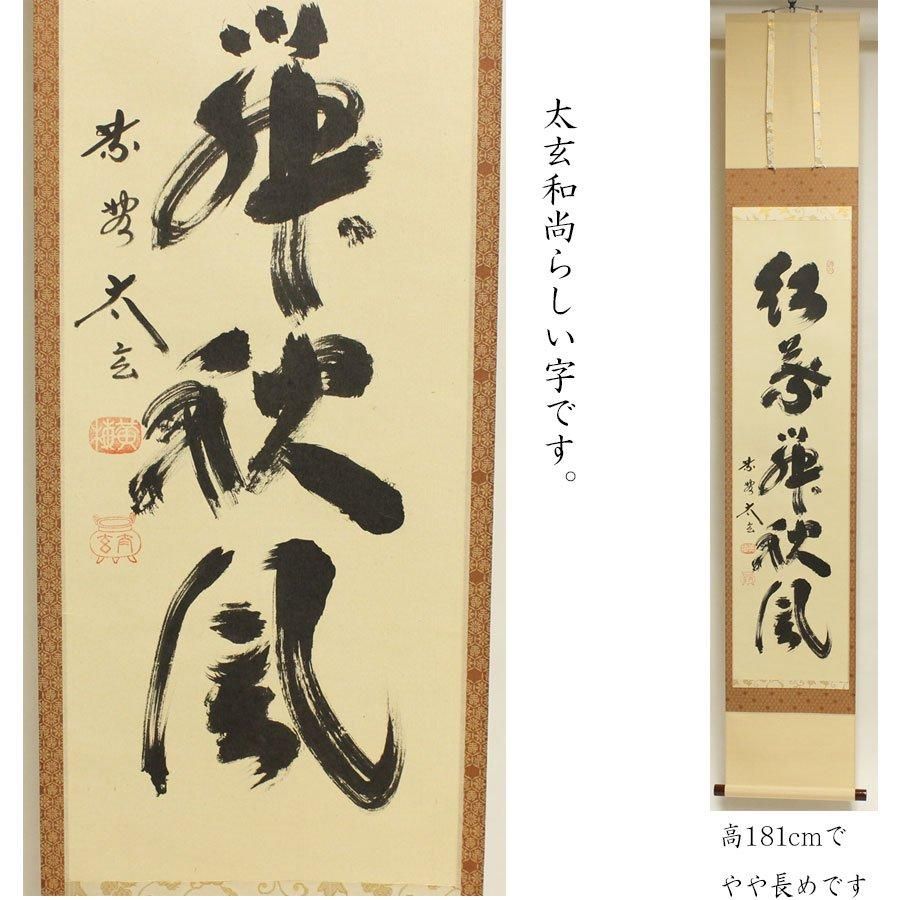 太玄和尚らしい字です。
紅葉舞秋風
太玄
舞秋風
太玄
黄梅
太玄
高181cmで
やや長めです